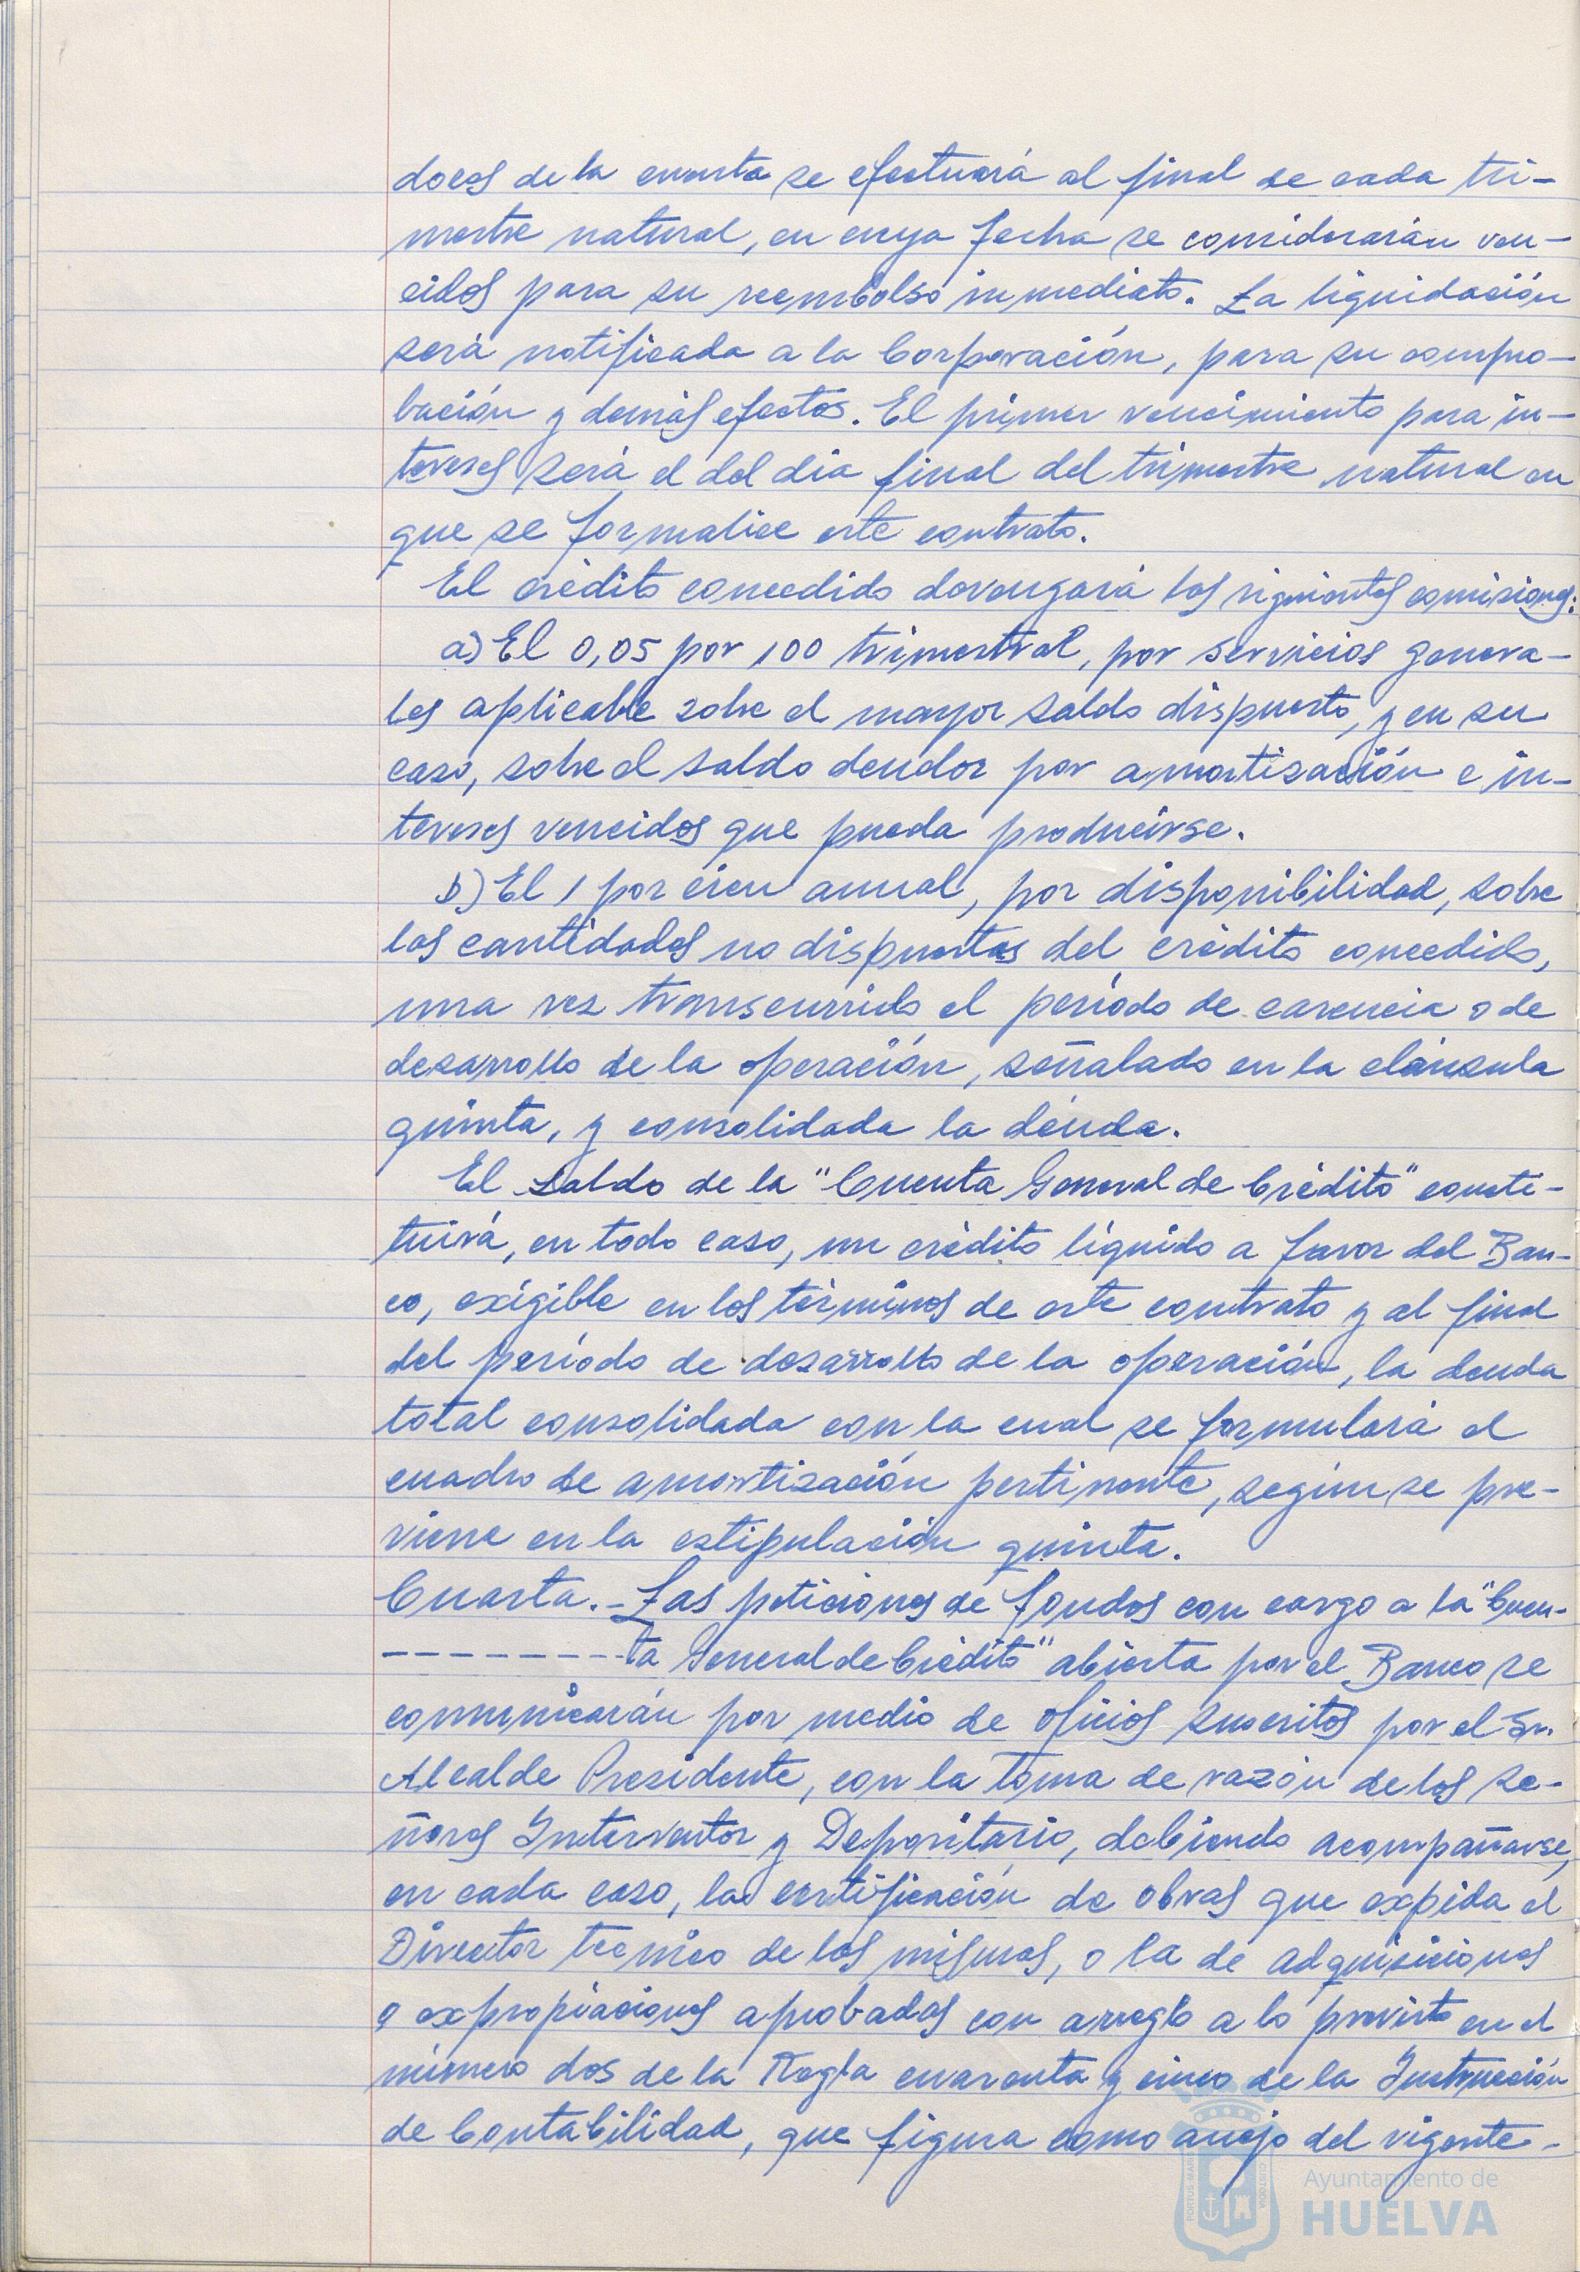 dores de la cuenta se efectuará al final de cada tri-
mestre natural, en cuya fecha se considerarán ven-
cidos para su reembolso inmediato. La liquidación
será notificada a la Corporación, para su compro-
bación y demás efectos. El primer vencimiento para in-
tereses será el del día final del trimestre natural en
que se formalice este contrato.
El crédito concedido devengará las siguientes comisiones:
a) El 0,05 por 100 trimestral, por servicios genera-
les aplicable sobre el mayor saldo dispuesto, y en su
caso, sobre el saldo deudor por amortización e in-
tereses vencidos que pueda producirse.
b) El 1 por cien anual, por disponibilidad, sobre
las cantidades no dispuestas del crédito concedido,
una vez transcurrido el período de carencia o de
desarrollo de la operación, señalado en la cláusula
quinta, y consolidada la deuda.
El saldo de la "Cuenta General de Crédito" consti-
tuirá, en todo caso, un crédito líquido a favor del Ban-
co, exigible en los términos de este contrato y al final
del período de desarrollo de la operación, la deuda
total consolidada con la cual se formulará el
cuadro de amortización pertinente, según se pre-
viene en la estipulación quinta.
Cuarta.- Las peticiones de fondos con cargo a la "Cuen-
---------ta General de Crédito" abierta por el Banco se
comunicarán por medio de oficios suscritos por el Sr.
Alcalde Presidente, con la toma de razón de los se-
ñores Interventor y Depositario, debiendo acompañarse,
en cada caso, la certificación de obras que expida el
Director técnico de las mismas, o la de adquisiciones
o expropiaciones aprobadas con arreglo a lo previsto en el
número dos de la Regla cuarenta y cinco de la Instrucción
de Contabilidad, que figura como anejo del vigente-
Ayuntamiento de
HUELVA